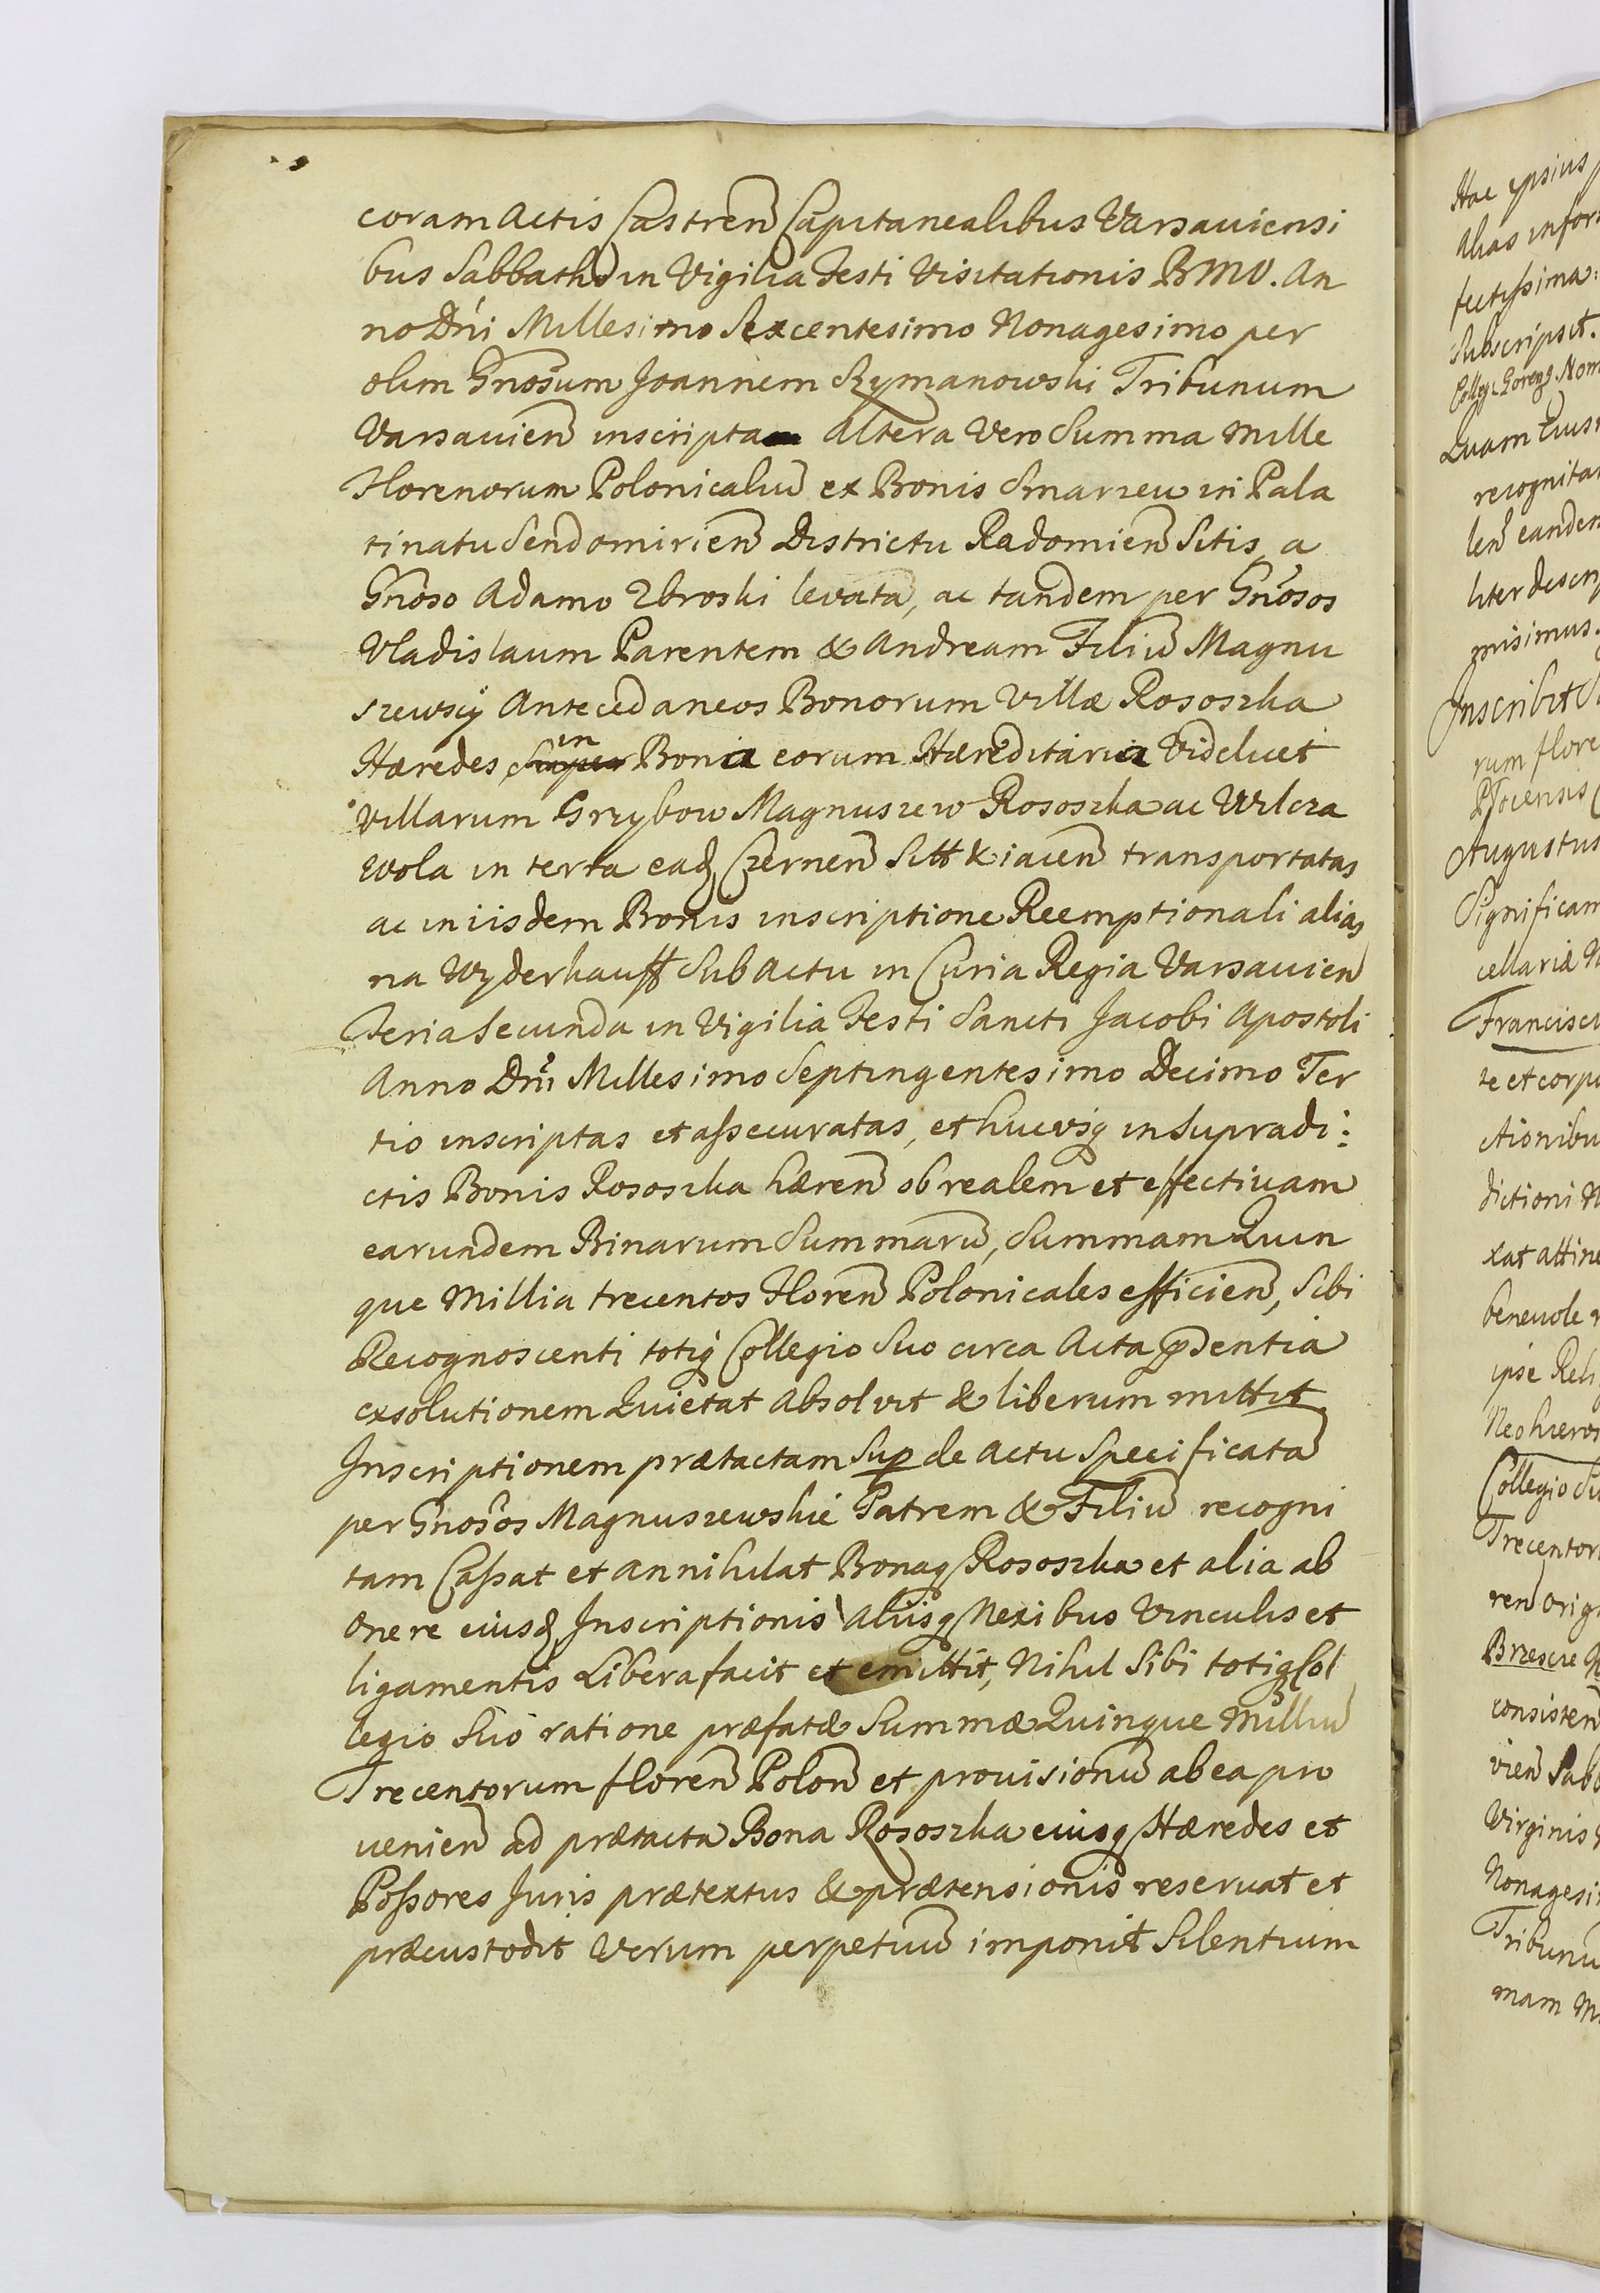 coram Actis Castren Capitanealibus Varsauiensi
bus Sabbatho in Vigilia Festi Visitationis BMV. An
no Dni Millesimo Sexcentesimo Nonagesimo per
olim Gnosum Joannem Szymanowski Tribunum
Varsauien inscripta Altera Vero Summa Mille
Florenorum Polonicaliu ex Bonis Smarzew in Pala
tinatu Sendomirien Districtu Radomien Sitis, a
Gnoso Adamo Zbroski levata, ac tandem per Gnosos
Vladislaum Parentem & Andream Filiu Magnu
szewscÿ Antecedaneos Bonorum Villæ Rososzka
Hæredes, in Bonia eorum Hæreditaria Videlicet
Villarum Grzybow Magnuszew Rososzka ac Wilcza
Wola in terra eadq Czernen Sitt & iacen transportatas
ac in iisdem Bonis inscriptione Reemptionali alias
na Wyderkauff Sub Actu in Curia Regia Varsauien
Feria Secunda in Vigilia Festi Sancti Jacobi Apostoli
Anno Dni Millesimo Septingentesimo Decimo Ter
tio inscriptas et assecuratas, et hucusq in Supradi:
ctis Bonis Rososzka hæren ob realem et effectiuam
earundem Binarum Summaru, Summam Quin
que Millia trecentos Floren Polonicales efficien, Sibi
Recognoscenti totiq Collegio Suo circa Acta pdentia
exsolutionem Quietat Absolvit & liberum mittit
Inscriptionem prætactam Sup de Actu Specificata
per Gnosos Magnuszewskie Patrem & Filiu recogni
tam Cassat et Annihilat Bonaq Rososzka et alia ab
Onere eiusdq Inscriptionis Aliisq Nexibus Vinculis et
ligamentis Libera facit et emittit, Nihil Sibi totiq Col
legio Suo ratione præfatæ Summæ Quinque Milliu
Trecentorum floren Polon et prouisionu ab ea pro
uenien ad prætacta Bona Rososzka eiusq Hæredes et
Possores Juris prætextus & prætensionis reseruat et
præcustodit Verum perpetuu imponit Silentium
Hac ipsius
Alias infor
fectissima:
Subscripsit.
Quam Eius
recognita
len eandem
liter descrip
misimus.
Inscribit
rum flore
Augustus
Significam
cellariæ N
Franciscu
te et corpo
ctionibu
dictioni N
xat attine
beneuole
ipse Reli
Neohieros
Collegio Su
Trecentor
ren Orig
Brzescie
consisten
vien Sabb
Virginis
Nonagesi
Tribunu
mam M